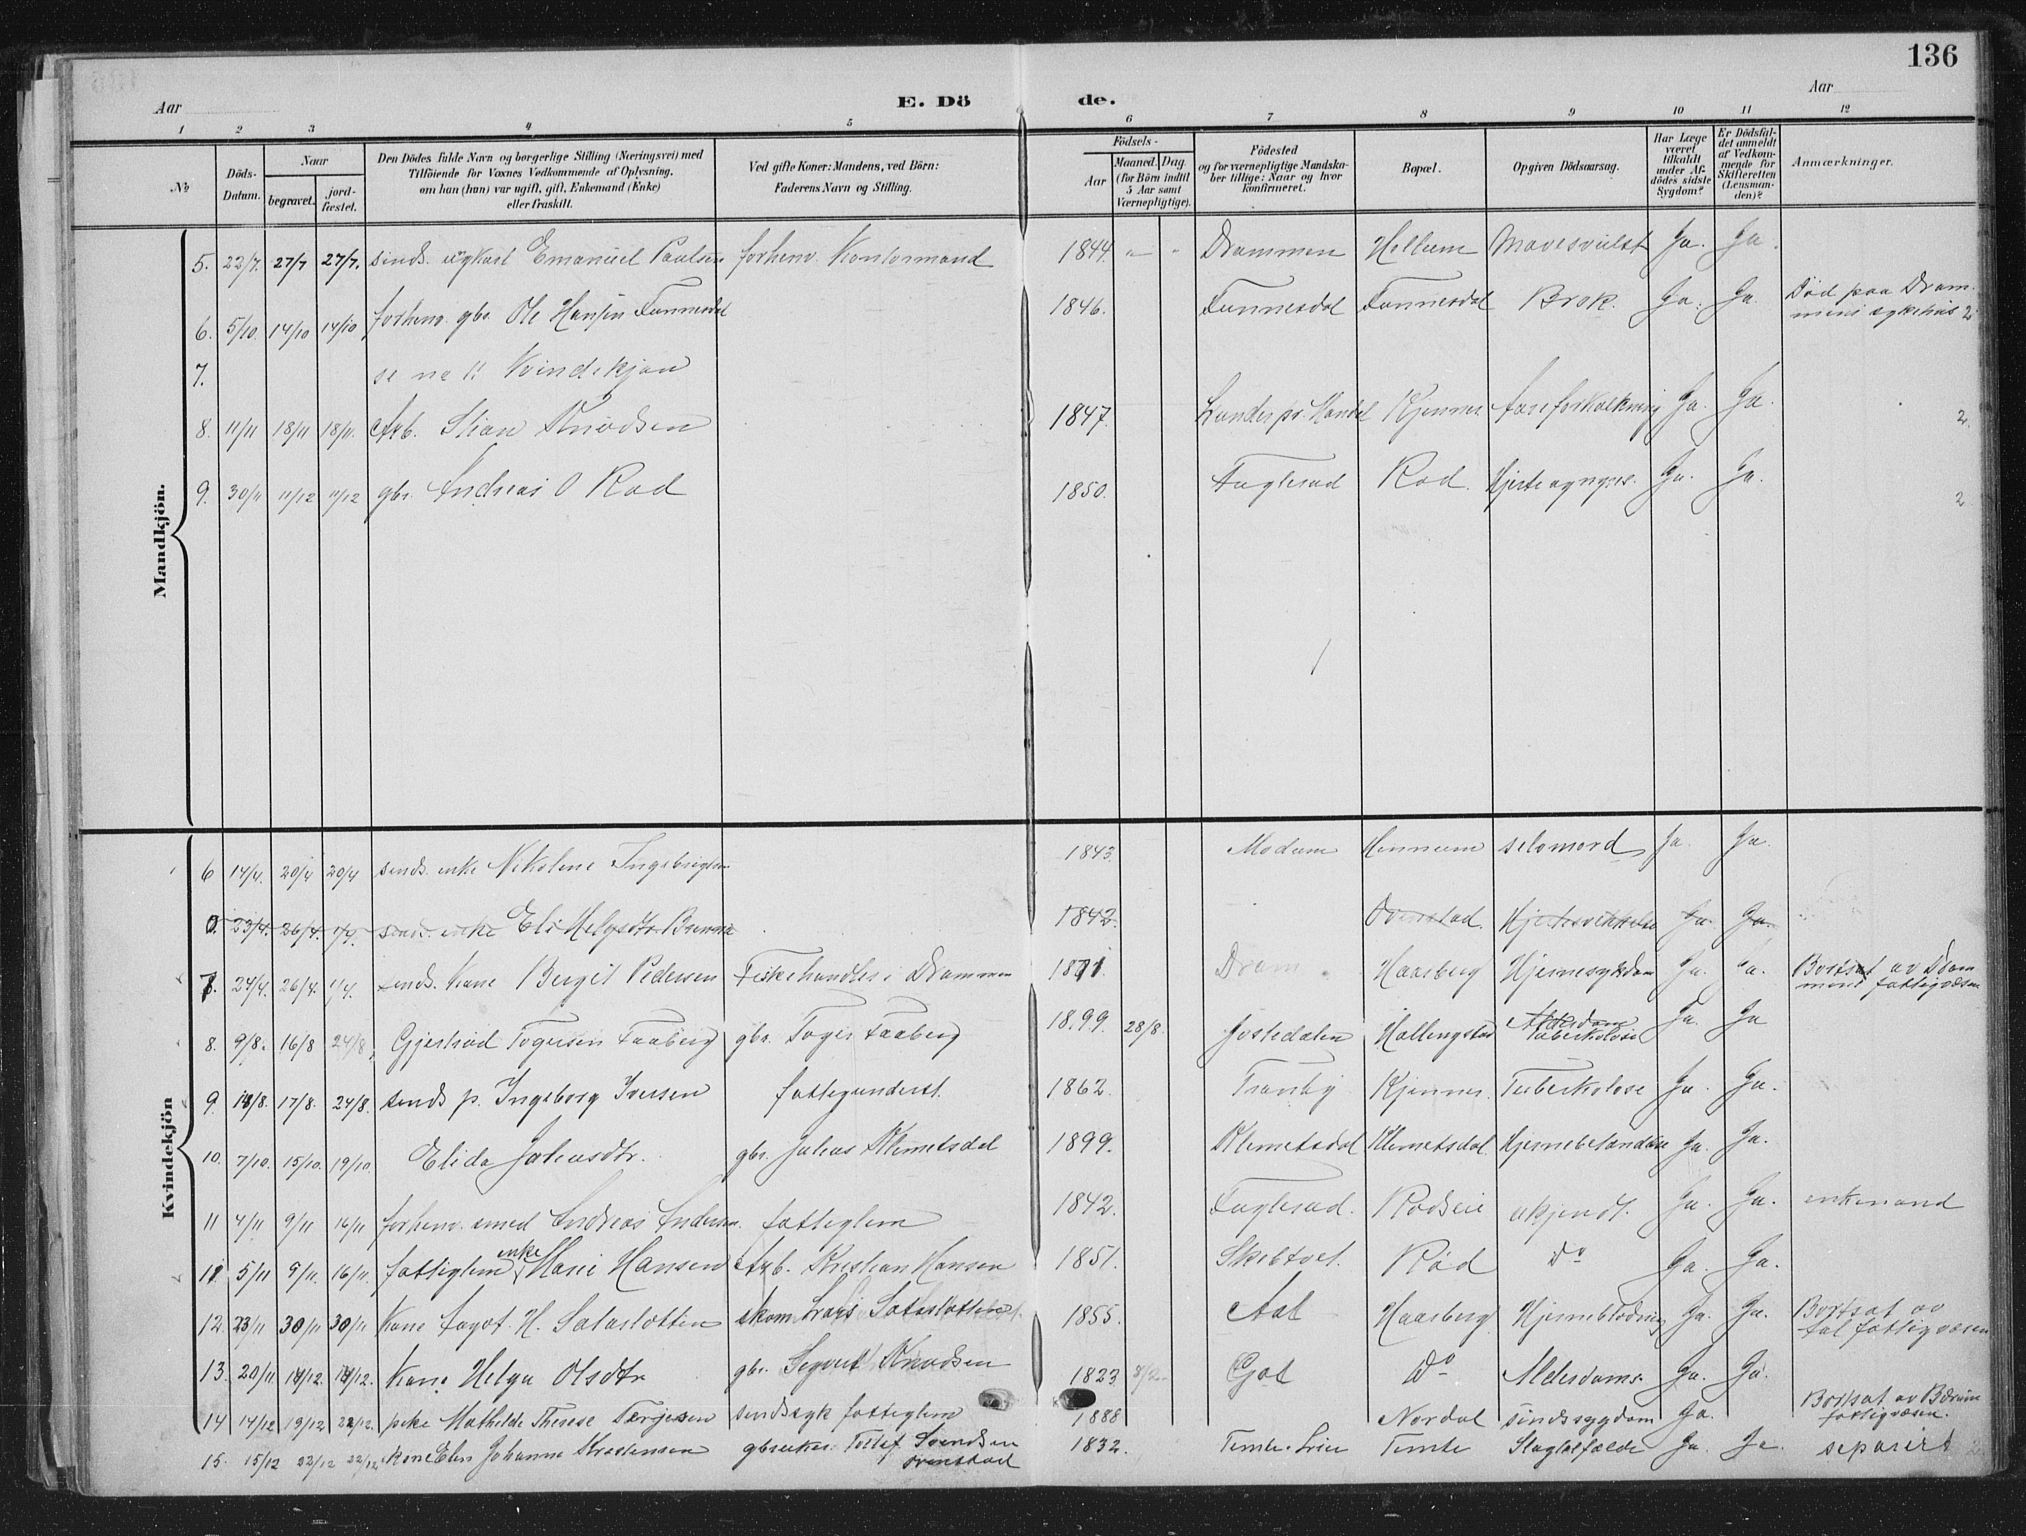 136
Aar
E. Dö
de.
Aar
1 2 3 4 5 6 7 8 9 10 11 12
No
Döds-Datum.
Naar
begravet.
jord-fæstet.
Den Dödes fulde Navn og borgerlige Stilling (Næringsvei) med
Tilföiende for Voxnes Vedkommende af Oplysning,
om han (hun) var ugift, gift, Enkemand (Enke)
eller fraskilt.
Ved gifte Koner: Mandens, ved Börn:
Faderens Navn og Stilling.
Födsels-
Aar
Maaned. Dag.
(for Börn indtil
5 Aar samt
Værnepligtige).
Födested
og for værnepligtige Mandska-
ber tillige: Naar og hvor
konfirmeret.
Bopæl.
Opgiven Dödsaarsag.
Har Læge
været
tilkaldt
under Af-
dödes sidste
Sygdom?
Er Dödsfal-
det anmeldt
af Vedkom-
mende for
Skifteretten
(Lensman-
den)?
Anmærkninger.
Mandkjön.
5. 23/7. 27/7 27/7. sinds. Emanuel Paulsen forhenv. Kontormand 1844. Drammen Hellum Mavesvulst Ja. Ja.
6. 5/10. 14/10 14/10 forhenv. gbr. Ole Hansen Tunnesdal 1846. Tunnesdal Tunnesdal Brok. Ja. Ja. Død paa Dram-
mens sykehus 2
7. se no 11 Kvindekjøn
8. 11/11 18/11 18/11. Arb. Stian Knudsen 1847. Kjenner Aareforkalkning Ja. Ja. 2.
9. 30/11 11/12 11/12 gbr. Andreas O Rød 1850. Fuglerud Rød. Ja. Ja. 2
Kvindekjön
6 14/4. 20/4 20/4 sinds. enke Nikoline Ingebrigtsen 1843. Modum Hennum selvmord Ja. Ja.
23/4. 26/4. 1/4. sinds. enke Eli Helgesdtr Brenna 1842. Ovenstad. Hjertesvækkelse Ja. Ja.
7. 24/4. 26/4. 1/4. sinds. Kone Bergit Pedersen Fiskehandler i Drammen 1871. Dram Haasberg Hjernesykdom Ja. Ja. Bortsat av Dram
mens fattigvæsen
8. 9/8. 16/8 24/8. Gjertrud Togersen Faaberg gbr. Toger Faaberg 1899. 28/8. Jostedalen Hallengstad Alderdom
Tuberkulose Ja. Ja
9 10/8. 17/8. 24/8. sinds p. Ingeborg Iversen fattigunderst. 1862. Tranby Kjenner Tuberkulose Ja. Ja.
10. 7/10. 15/10. 19/10. Elida Juliusdtr. gbr. Julius Klemetsdal 1899. Klemetsdal Klemetsdal Hjernebetændelse Ja. Ja.
11 4/11 9/11 16/11 forhenv. smed Andreas Andersen fattiglem 1842. Fuglerud. Rødseie ukjendt. Ja. Ja. enkemand
11 5/11 9/11. 16/11. fattiglem enke Marie Hansen Arb. Kristian Hansen 1851. Skibtvet. Rød Do Ja. Ja.
12. 23/11 30/11 30/11 Kone Aagot. H. Sataslotten skom. Lars Sataslotten 1855. Aal Haasberg Hjerneblødning Ja. Ja. Bortsat av
Aal fattigvæsen
13. 20/11 14/12. 14/12. Kone Helga Olsdtr gbr. Syvert Knudsen 1823 8/2 Gol Do Alderdoms. Ja. Ja.
14 14/12 19/12 22/12. pike Mathilde Therese Terjesen sindssyk fattiglem 1888 Nordal sindssygdom Ja. Bortsat av Bærum
fattigvæsen.
15. 15/12 22/12 22/12. kone Elen Johanne Kristensen gbruker Tollef Svendsen
Ovenstad 1832. Temte Lier Temte Slagtilfælde Ja. Ja. separert 2